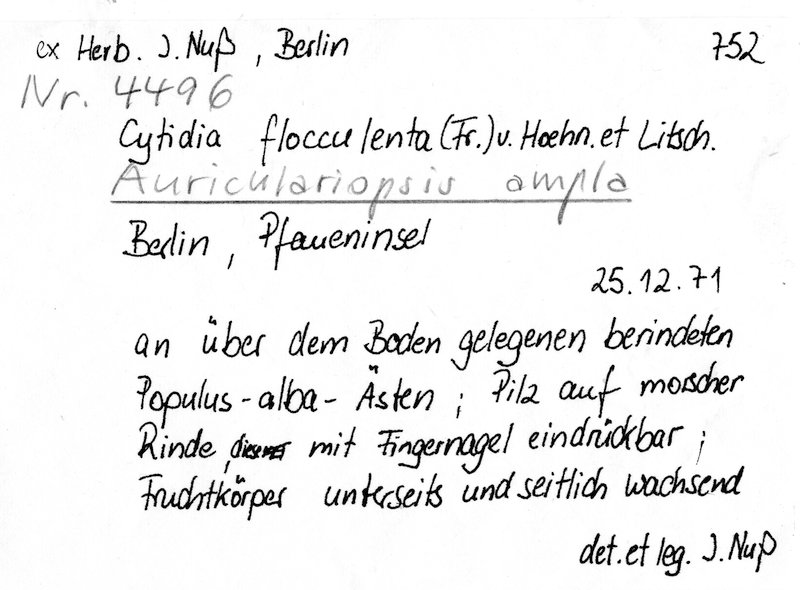 ex Herb. J. Nuß, Berlin 752
Nr. 4496
Cytidia flocculenta (Fr.) v. Hoehn. et Litsch.
Auriculariopsis ampla
Berlin, Pfaueninsel
25.12.71
an über dem Boden gelegenen berindeten
Populus-alba-Ästen; Pilz auf morscher
Rinde, mit Fingernagel eindrückbar;
Fruchtkörper unterseits und seitlich wachsend
det. et leg. J. Nuß